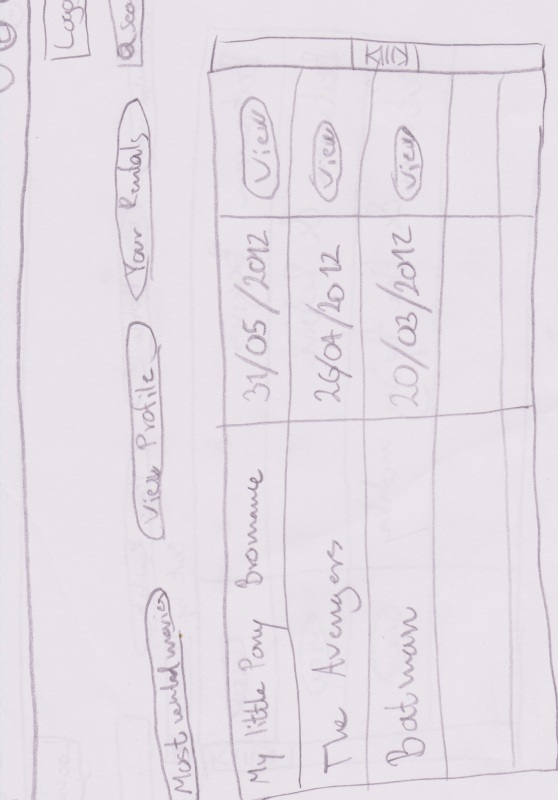 Logo
Most rented movies View Profile Your Rentals
My little Pony Bromance 31/05/2012 View
The Avengers 26/04/2012 View
Batman 20/03/2012 View